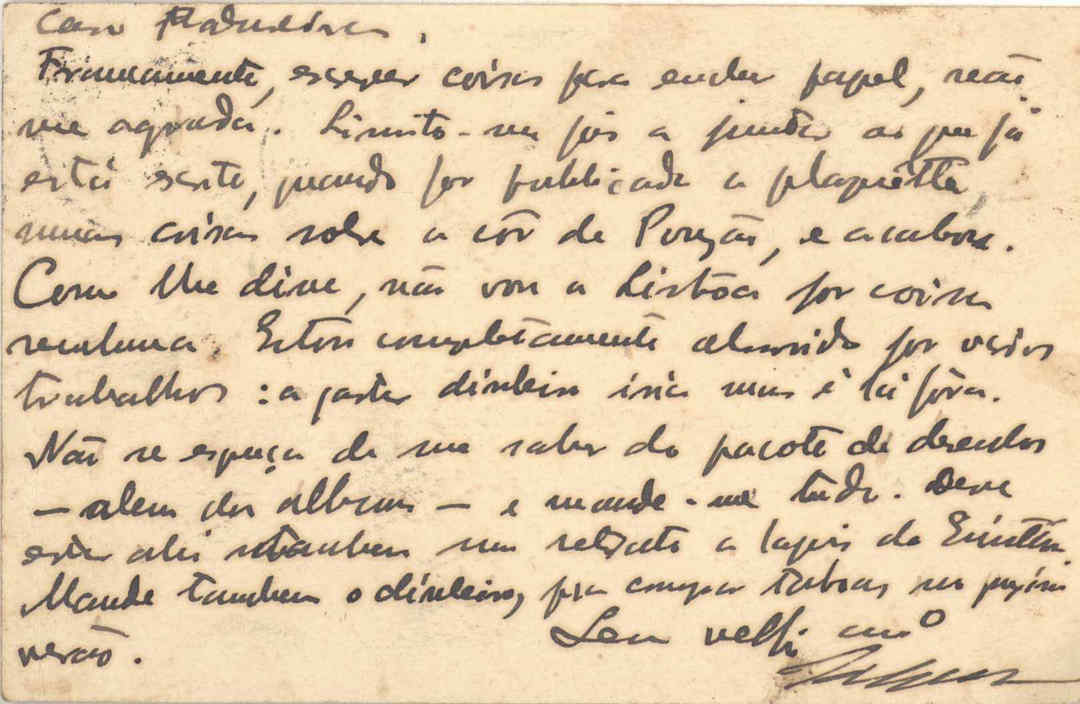 Caro Madureira.
Francamente, escrever coisas para encher papel, não
me agrada. Limito-me pois a juntar ao que já
está escrito, quando for publicada a plaquette
umas coisas sobre a côr de Pousão, e acabou.
Como lhe disse, não vou a Lisbôa por coisa
nenhuma. Estou completamente absorvido por varios
trabalhos: a gastar dinheiro iria mas é lá fóra.
Não se esqueça de me saber do pacote de desenhos
— alem do album — e mande-me tudo. Deve
estar ali tambem um retrato a lapis do
Mande tambem o dinheiro, pra comprar taboas no proximo
verão.
Seu velho amº